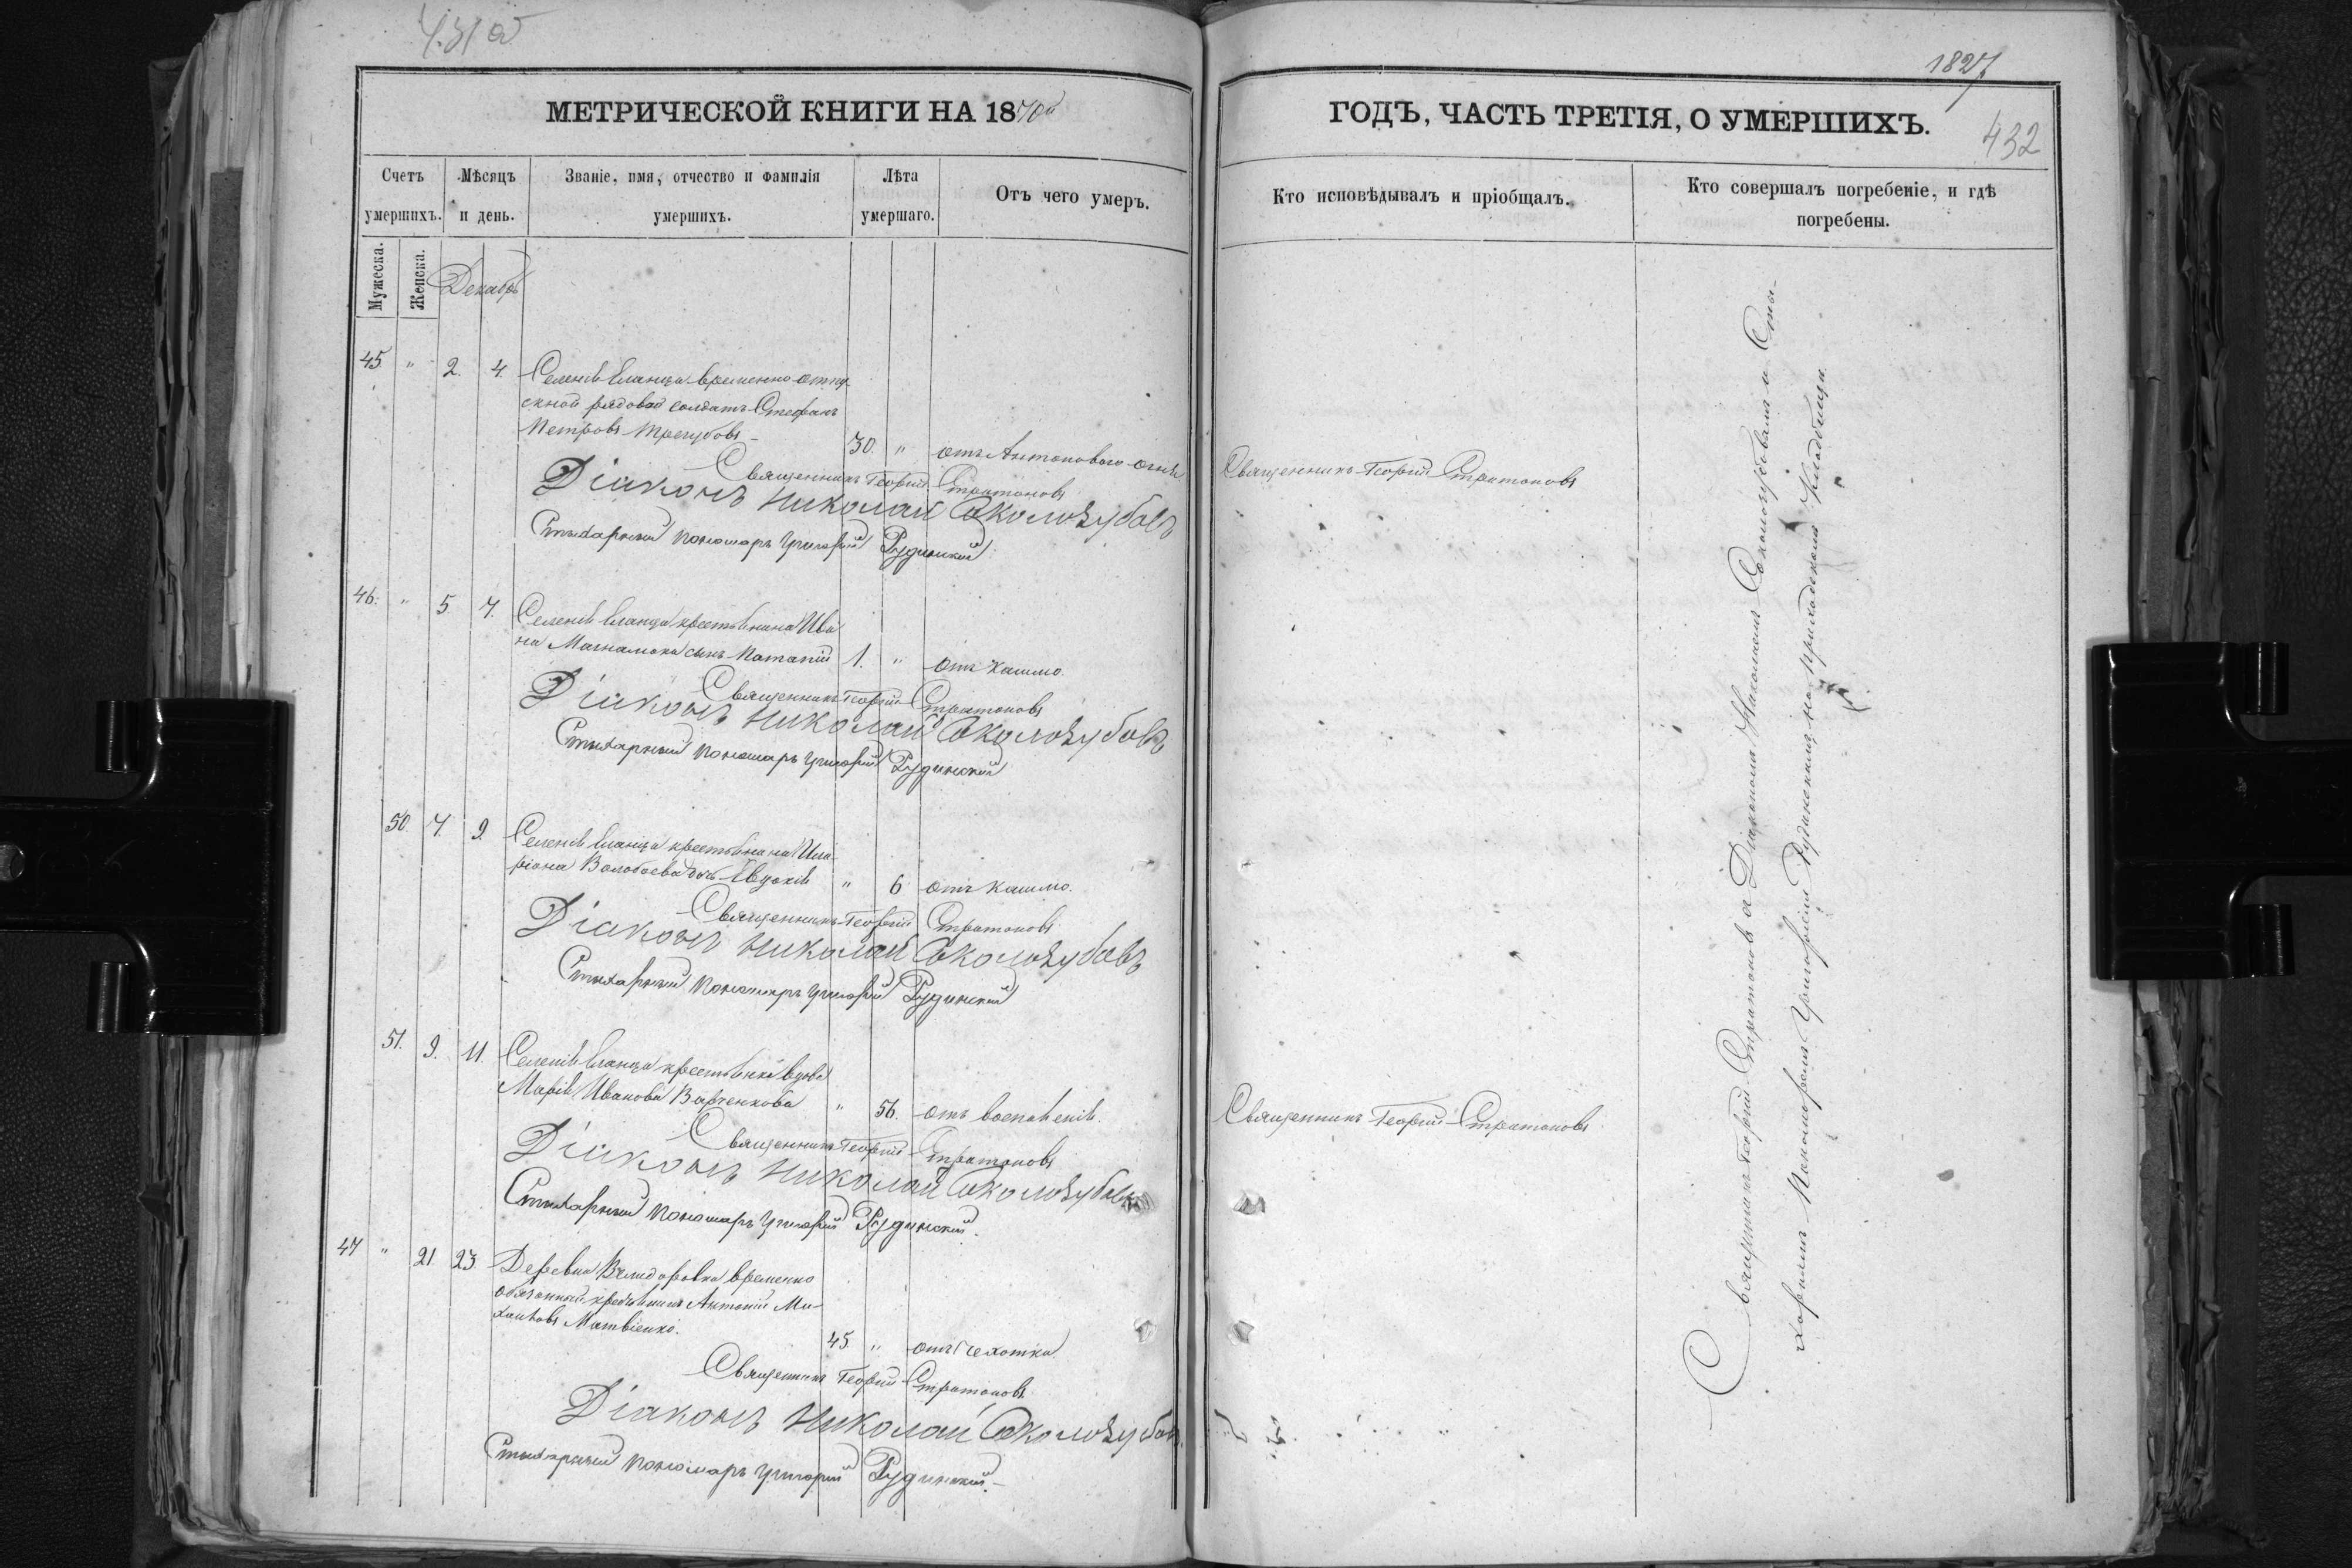 431об
1827
432
МЕТРИЧЕСКОЙ КНИГИ НА 1870й
ГОДЪ, ЧАСТЬ ТРЕТІЯ, О УМЕРШИХЪ.
Счетъ умершихъ.
Мѣсяцъ и день.
Званіе, имя, отчество и фамилія умершихъ.
Лѣта умершаго.
Отъ чего умеръ.
Кто исповѣдывалъ и пріобщалъ.
Кто совершалъ погребеніе, и гдѣ погребены.
Мужеска.
Женска.
Декабрь
45 " 2. 4. временно отпу-
скной рядовой солдатъ Стефанъ
Петровъ Трегубовъ -
30. " отъ Антонового огня
Священникъ Георгій Стратоновъ
Священникъ Георгій Стратоновъ
Діаконъ Николай Соколозубовъ
Стихарный пономарь Григорій Рудинский
46. " 5. 7. крестьянина Ива
на сынъ Потапій 1. " отъ кашлю.
Священникъ Георгій Стратоновъ
Діаконъ Николай Соколозубовъ
Стихарный пономарь Григорій Рудинский
50. 7. 9. крестьянина Ила-
ріона Волобоева дочь Евдокія " 6 отъ кашлю.
Священникъ Георгій Стратоновъ
Діаконъ Николай Соколозубовъ
Стихарный пономарь Григорій Рудинский
51. 9. 11. крестьянка вдова
Марія Иванова " 56. отъ воспаленія.
Священникъ Георгій Стратоновъ
Священникъ Георгій Стратоновъ
Діаконъ Николай Соколозубовъ
Стихарный пономарь Григорій Рудинский.
47 " 21. 23. Деревни временно
обязанный крестьянинъ Антоній Ми-
хаиловъ Матвіенко.
45. " отъ чехотки.
Священникъ Георгій Стратоновъ
Діаконъ Николай Соколозубовъ
Стихарный пономарь Григорій Рудинский. -
Священникъ Георгій Стратоновъ с Діакономъ Николаемъ Соколозубовымъ и Сти-
харнымъ Пономаремъ Григоріемъ Рудинскимъ, на приходскомъ кладбищи.